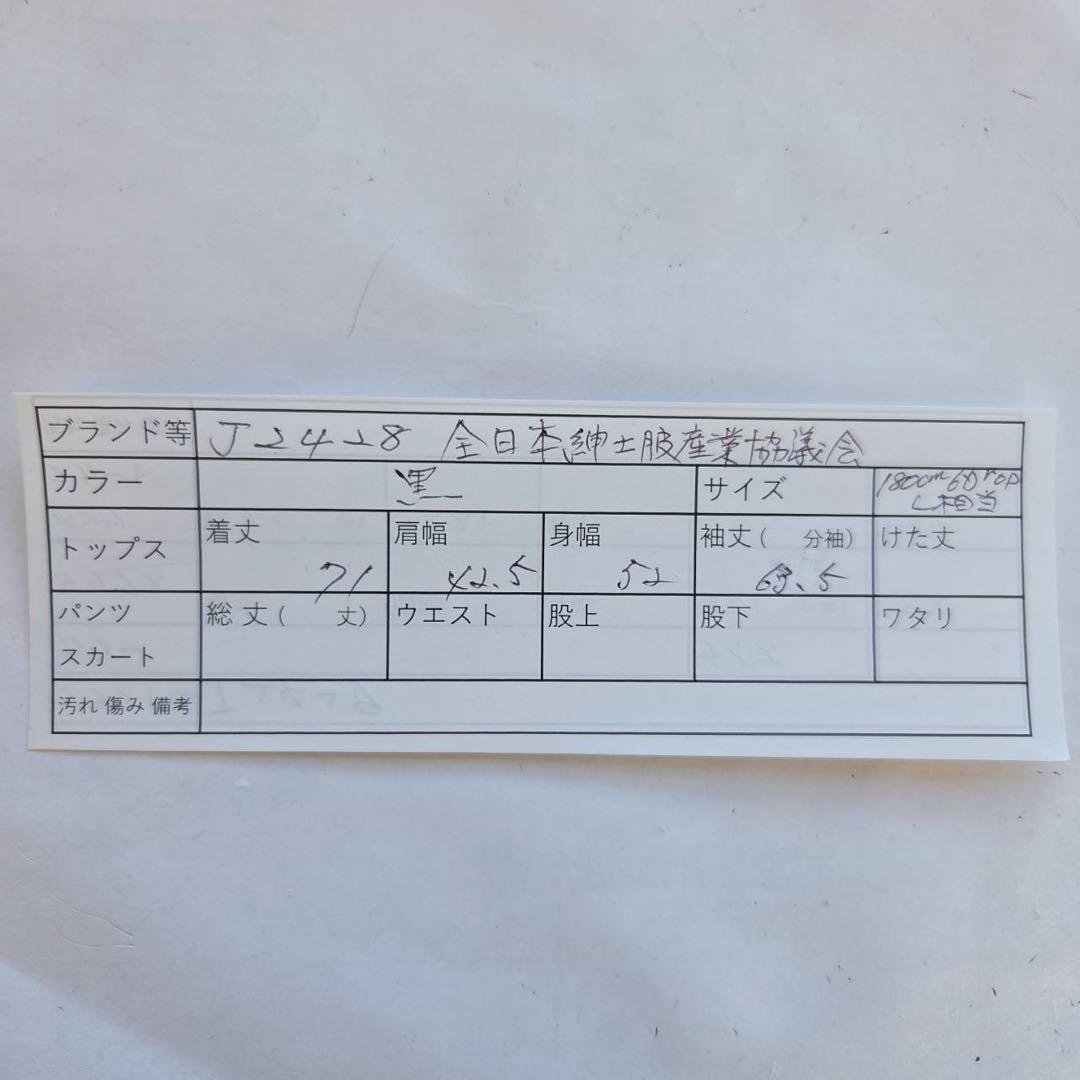 ブランド等 J2428 全日本紳士服産業協議会
カラー 黒 サイズ 180cm 6Drop
L相当
トップス 着丈 肩幅 身幅 袖丈( 分袖) けた丈
71 42.5 52 63.5
パンツ 総丈( 丈) ウエスト 股上 股下 ワタリ
スカート
汚れ 傷み 備考